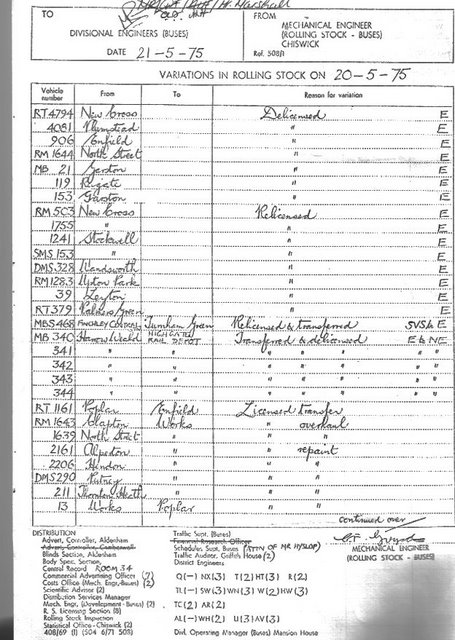 TO
FROM
DIVISIONAL ENGINEERS (BUSES)
MECHANICAL ENGINEER
(ROLLING STOCK - BUSES)
CHISWICK
DATE 21-5-75
Ref. 508/1
VARIATIONS IN ROLLING STOCK ON 20-5-75
Vehicle number From To Reason for variation
RT 4794 New Cross Delicensed E
4081 Plumstead " E
906 Enfield " E
RM 1644 North Street " E
MB 21 Garston " E
119 Reigate " E
153 Garston " E
RM 503 New Cross Relicensed E
1755 " " E
1241 Stockwell " E
SMS 153 " " E
DMS 328 Wandsworth " E
RM 1283 Upton Park " E
39 Leyton " E
RT 379 Palmers Green " E
MBS 468 FINCHLEY Turnham Green Relicensed & transferred SVS to E
MB 340 Harrow Weald HIGHGATE RAIL DEPOT Transferred & delicensed E to NE
341 " " " " " " "
342 " " " " " " "
343 " " " " " " "
344 " " " " " " "
RT 1161 Poplar Enfield Licensed transfer
RM 1643 Clapton Works " overhaul
1639 North Street " " "
2161 Alperton " " repaint
2206 Hendon " " "
DMS 290 Putney " " "
211 Thornton Heath " " "
13 Works Poplar "
continued over
DISTRIBUTION
Advert. Controller, Aldenham
Blinds Section, Aldenham
Body Spec. Section,
Central Record ROOM 34
Commercial Advertising Officer (7)
Costs Office (Mech. Engr.-Buses) (2)
Scientific Advisor (2)
Distribution Services Manager
Mech. Engr. (Development - Buses) (2)
R. S. Licensing Section (8)
Rolling Stock Inspection
Statistical Office - Chiswick (2)
408/69 (1) (504 6/71 503)
Traffic Supt. (Buses)
Schedules Supt. Buses (ATTN OF MR HYSLOP)
Traffic Auditor, Griffith House (2)
District Engineers
Q (-) NX (3) T (2) HT (3) R (2)
TL (-) SW (3) WN (3) W (2) HW (3)
TC (2) AR (2)
AL (-) WH (2) U (3) AV (3)
Divl. Operating Manager (Buses) Mansion House
MECHANICAL ENGINEER
(ROLLING STOCK - BUSES)